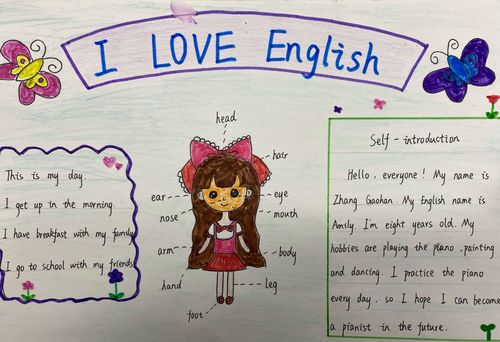 I LOVE English
This is my day.
I get up in the morning.
I have breakfast with my family
I go to school with my friends
head
hair
ear
eye
nose
mouth
arm
body
hand
leg
foot
Self-introduction
Hello, everyone! My name is
Zhang Gaohan. My English name is
Amily. I'm eight years old. My
hobbies are playing the piano, painting
and dancing. I practice the piano
every day, so I hope I can become
a pianist in the future.